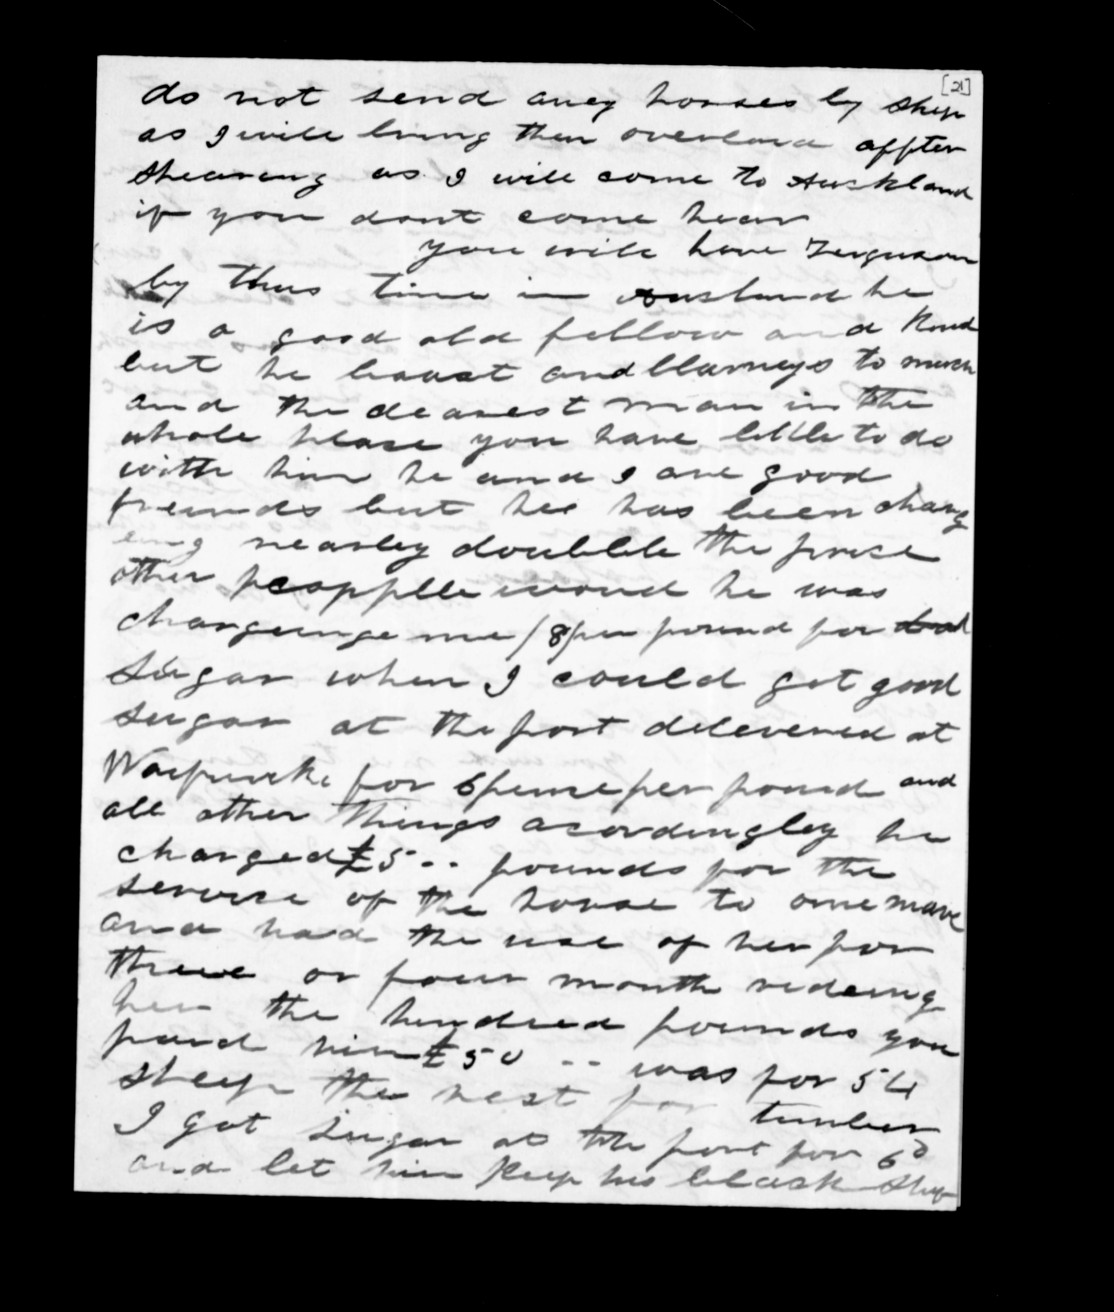 [21]
do not send aney horses by ship
as I will bring them overland affter
shearing as I will come to Auckland
if you dont come hear
you will have Ferguson
by thus time in Auckland he
is a good old fellow and kind
but he boast and Blarneys to much
and the dearest man in the
whole place you have little to do
with him he and I are good
freinds but hee has been charg
eing nearley doublle the price
other peopplle woud he was
chargeinge me /8 per pound for bad
sugar when I could got good
sugar at the port delevered at
for 6 pence per pound and
all other things acordingley he
charged £5 -- pounds for the
service of the horse to one mare
and had the use of her for
threee or four month rideing
her the hundred pounds you
paid him £50 -- was for 54
sheep the rest for timber
I got sugar at the port for 6d
and let him keep his black stuf